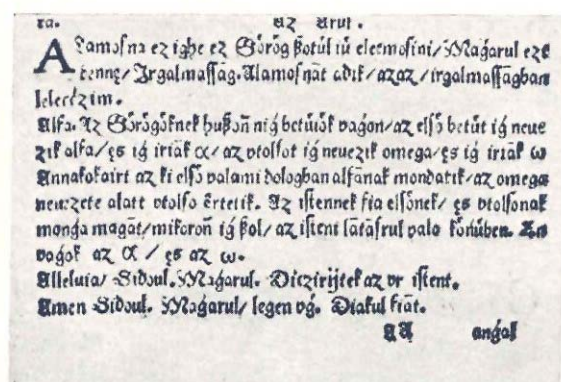 ra. Az Arut.
Alamosna ez ighe ez Görög ßotúl iú eleemosini/Maǵarul ezt
tenne/Irgalmassāg. Alamosnāt adik/azaz/irgalmassāgban
lelecʒim.
Alfa. Az Görögöknek hußoñ nig betúiök vaǵon/az elsö betút iǵ neue
zik alfa/ęs iǵ iriāk α/az vtolsot iǵ neuezik omega/ęs iǵ iriāk ω
Annakokairt az ki elsö valami dologban alfānak mondatik/az omega
neuezete alatt vtolso ērtetik. Az istennek fia elsönek/ęs vtolsonak
monǵa magāt/mikoron iǵ ßol/az istent lātāsrul valo kōńúben. En
vaǵok az α / ęs az ω.
Alleluia/ Sidoul. Maǵarul. Dicʒirijtek az vr istent.
Amen Sidoul. Maǵarul/ legen vǵ. Diakul fiāt.
AA anǵal